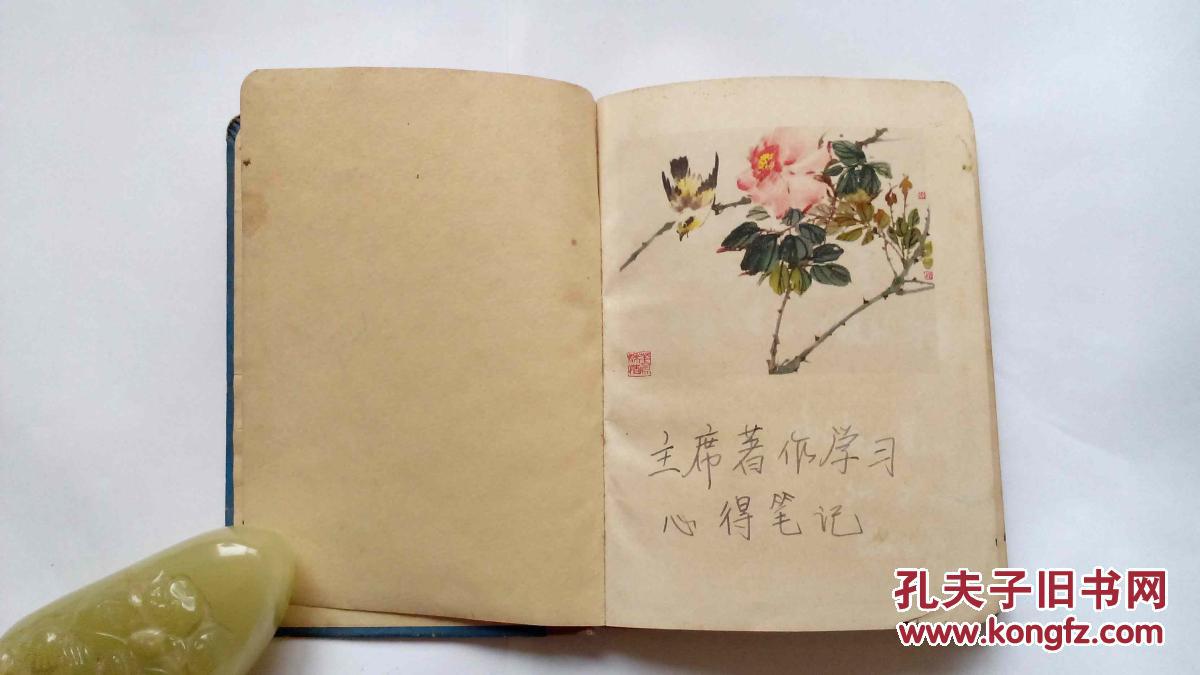 主席著作学习
心得笔记
孔夫子旧书网
www.kongfz.com